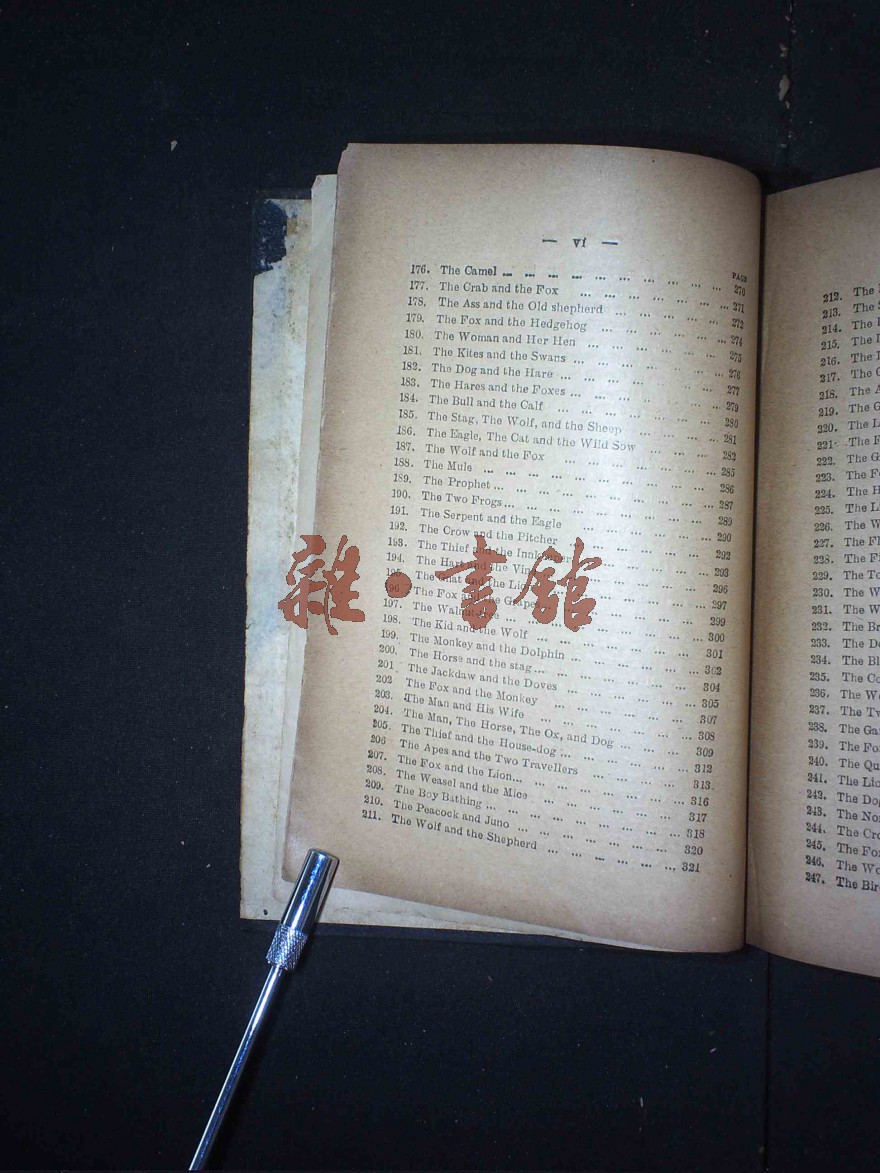 — vi —
PAGE
176. The Camel ... ... ... ... ... ... ... ... ... ... 270
177. The Crab and the Fox ... ... ... ... ... ... ... 271
178. The Ass and the Old shepherd ... ... ... ... ... 272
179. The Fox and the Hedgehog ... ... ... ... ... ... 274
180. The Woman and Her Hen ... ... ... ... ... ... 275
181. The Kites and the Swans ... ... ... ... ... ... 276
182. The Dog and the Hare ... ... ... ... ... ... ... 277
183. The Hares and the Foxes ... ... ... ... ... ... 279
184. The Bull and the Calf ... ... ... ... ... ... ... 280
185. The Stag, The Wolf, and the Sheep ... ... ... ... 281
186. The Eagle, The Cat and the Wild Sow ... ... ... 282
187. The Wolf and the Fox ... ... ... ... ... ... ... 285
188. The Mule ... ... ... ... ... ... ... ... ... ... 286
189. The Prophet ... ... ... ... ... ... ... ... ... 287
190. The Two Frogs ... ... ... ... ... ... ... ... ... 289
191. The Serpent and the Eagle ... ... ... ... ... ... 290
192. The Crow and the Pitcher ... ... ... ... ... ... 292
193. The Thief and the Innkeeper ... ... ... ... ... 293
194. The Hart and the Vine ... ... ... ... ... ... 296
195 The Gnat and the Lion ... ... ... ... ... ... 297
196 The Fox and the Grapes ... ... ... ... ... ... 299
197. The Walnut-tree ... ... ... ... ... ... ... ... 300
198. The Kid and the Wolf ... ... ... ... ... ... ... 301
199. The Monkey and the Dolphin ... ... ... ... ... 302
200. The Horse and the stag ... ... ... ... ... ... ... 304
201 The Jackdaw and the Doves ... ... ... ... ... ... 305
202 The Fox and the Monkey ... ... ... ... ... ... 307
203. The Man and His Wife ... ... ... ... ... ... ... 308
204. The Man, The Horse, The Ox, and Dog ... ... ... 309
205. The Thief and the House-dog ... ... ... ... ... 312
206 The Apes and the Two Travellers ... ... ... ... 313
207. The Fox and the Lion ... ... ... ... ... ... ... 316
208. The Weasel and the Mice ... ... ... ... ... ... 317
209. The Boy Bathing ... ... ... ... ... ... ... ... 318
210. The Peacock and Juno ... ... ... ... ... ... ... 320
211. The Wolf and the Shepherd ... ... ... ... ... ... 321
212. The
213. The
214. The
215. The
216. The
217. The
218. The
219. The
220. The
221. The
222. The
223. The
224. The
225. The
226. The
227. The
228. The
229. The
230. The
231. The
232. The
233. The
234. The
235. The
236. The
237. The
238. The
239. The
240. The
241. The
242. The
243. The
244. The
245. The
246. The
247. The
雜·書館